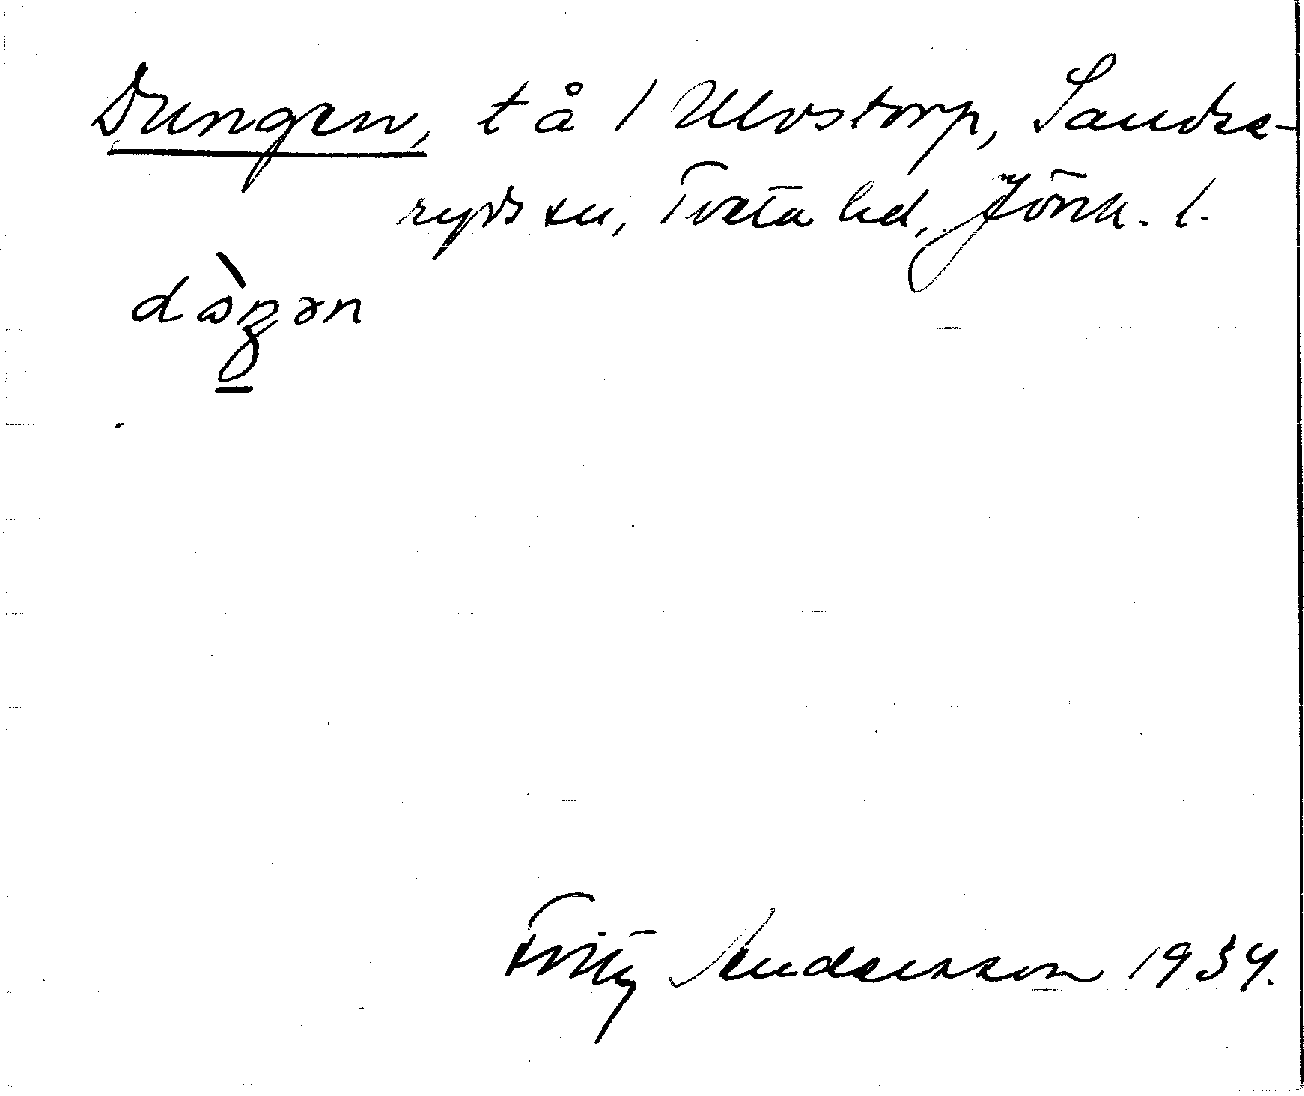 Dungen, tå / Ulvstorp, Sandse-
ryds sn, Tveta hd, Jönk. l.
Fritz Andersson 1934.